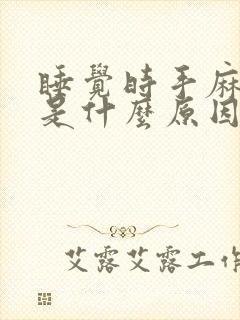 睡覺時手麻
是什麼原因
艾露艾露工作